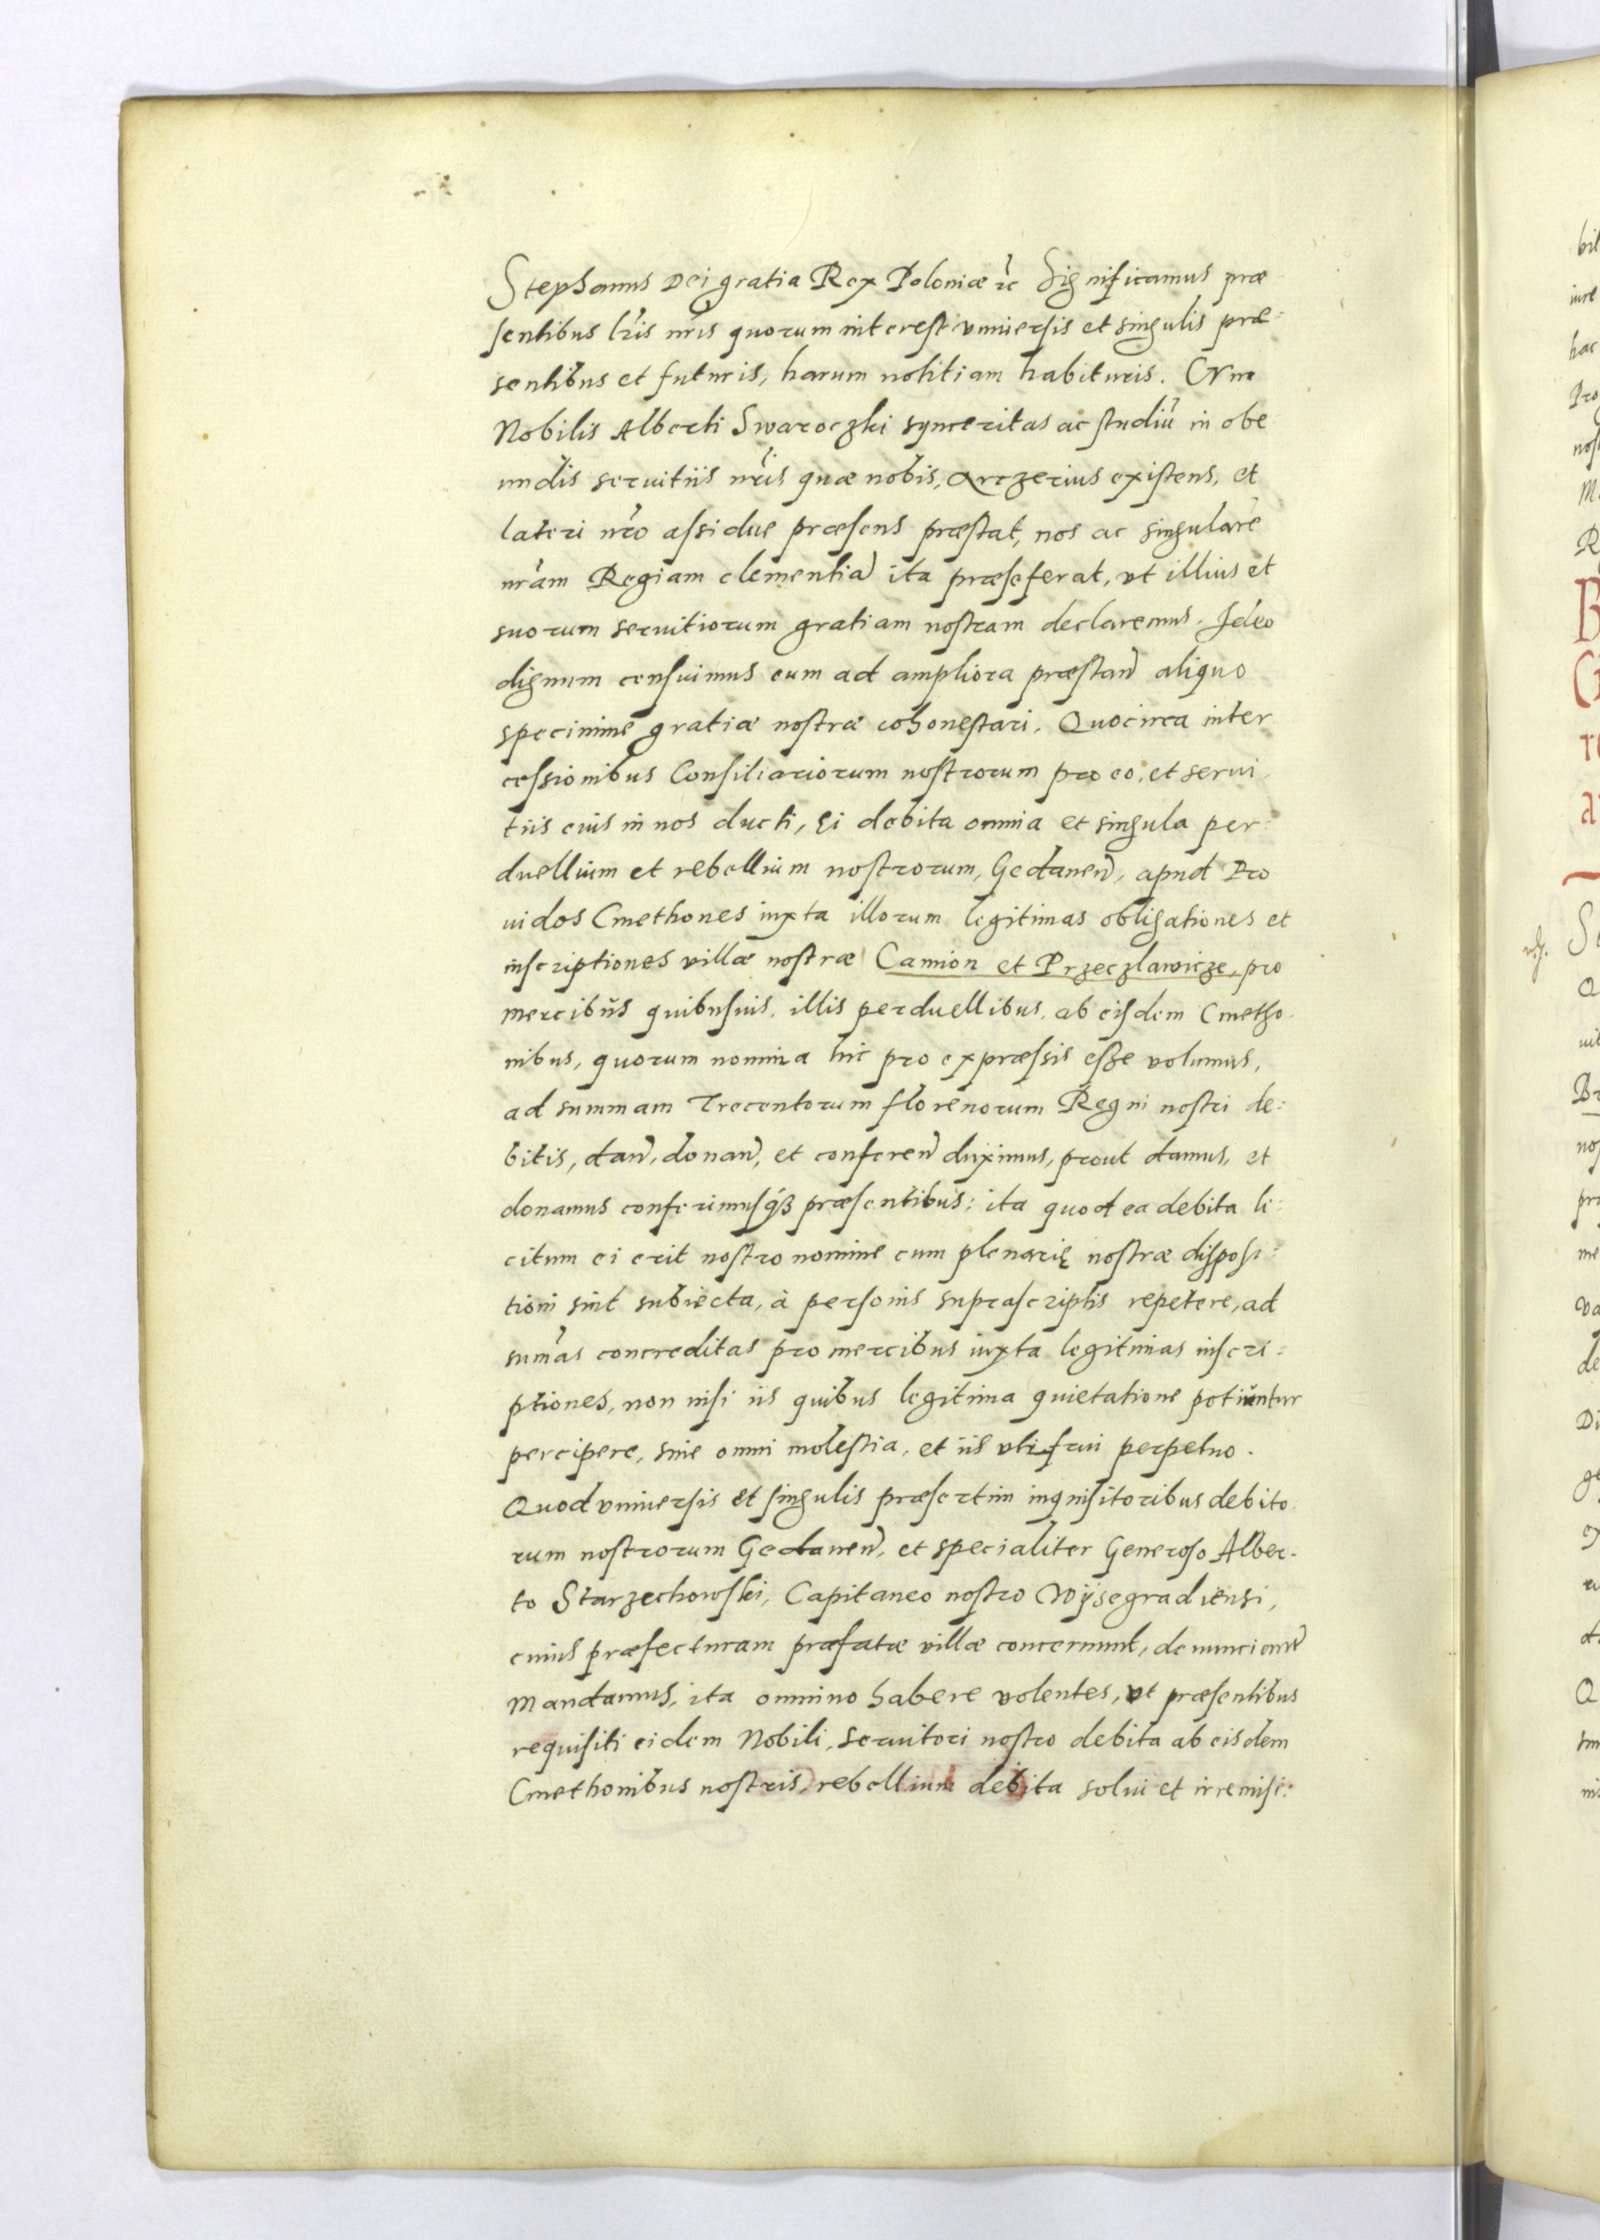 Stephanus Dei gratia Rex Poloniæ etc̄ Significamus præ
sentibus lr̄is nr̄is quorum interest vniuersis et singulis præ:
sentibus et futuris, harum notitiam habituris. CVm
Nobilis Alberti Swaroczki synceritas ac studiū in obe
undis seruitiis nr̄is quæ nobis, Arczerius existens, et
lateri nr̄o assidue præsens præstat, nos ac singularē
nr̄am Regiam clementiā ita præseferat, vt illius et
suorum seruitiorum gratiam nostram declaremus. Ideo
dignum censuimus eum ad ampliora præstan̄ aliquo
specimine gratiæ nostræ cohonestari. Quocirca inter
cessionibus Consiliariorum nostrorum pro eo, et serui
tiis eius in nos ducti, Ei debita omnia et singula per:
duellium et rebellium nostrorum, Gedanen̄, apud Pro
uidos Cmethones iuxta illorum legitimas obligationes et
inscriptiones villæ nostræ Camion et Przeczlawicze, pro
mercibus quibusuis, illis perduellibus, ab eisdem Cmetho
nibus, quorum nomina hic pro expræssis esse volumus,
ad summam Trecentorum florenorum Regni nostri de:
bitis, dan̄, donan̄, et conferen̄ duximus, prout damus, et
donamus conferimusq́ꝫ præsentibus: ita quod ea debita li:
citum ei erit nostro nomine cum plenarię nostræ disposi:
tioni sint subiecta, à personis suprascriptis repetere, ad
sum̄as concreditas pro mercibus iuxta legitimas inscri:
ptiones, non nisi iis quibus legitima quietatione potiuntur
percipere, sine omni molestia, et iis vti frui perpetuo.
Quod vniuersis et singulis præsertim inquisitoribus debito
rum nostrorum Gedanen̄, et specialiter Generoso Alber-
to Starzechowski, Capitaneo nostro Wÿsegradiensi,
cuius præfecturam præfatæ villæ concernunt, denunciam̄
Mandamus, ita omnino habere volentes, vt præsentibus
requisiti eidem Nobili, seruitori nostro debita ab eisdem
Cmethonibus nostris, rebellium debita solui et irremisi: